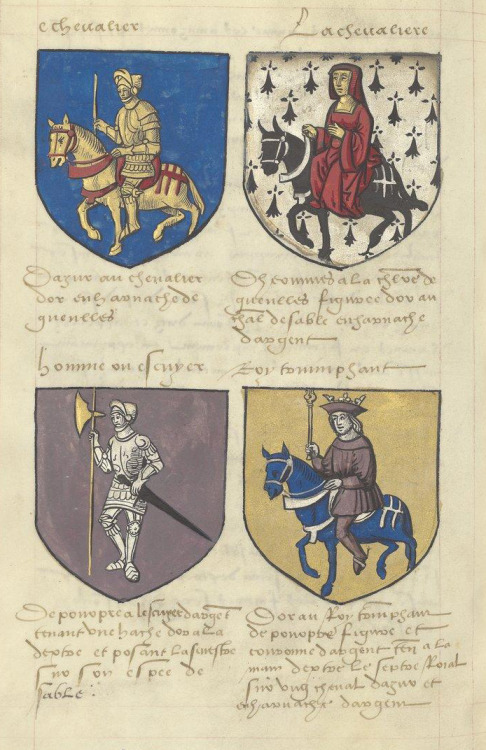 e chevalier
La chevaliere
Dazur au chevalier
dor enharnache de
gueulles
Dhermines a la chlre de
gueulles figuree dor au
chal de sable enharnache
dargent
homme ou escuyer
Roy triumphant
De pourpre a lescuier dargēt
tenant une hache dor a la
dextre et posant la senestre
sur son espee de
sable :
Dor au Roy triumphant
de pourpre figure et
couronne dargent tenant a la
main dextre le septre Roial
sur ung cheval dazur et
enharnache dargent